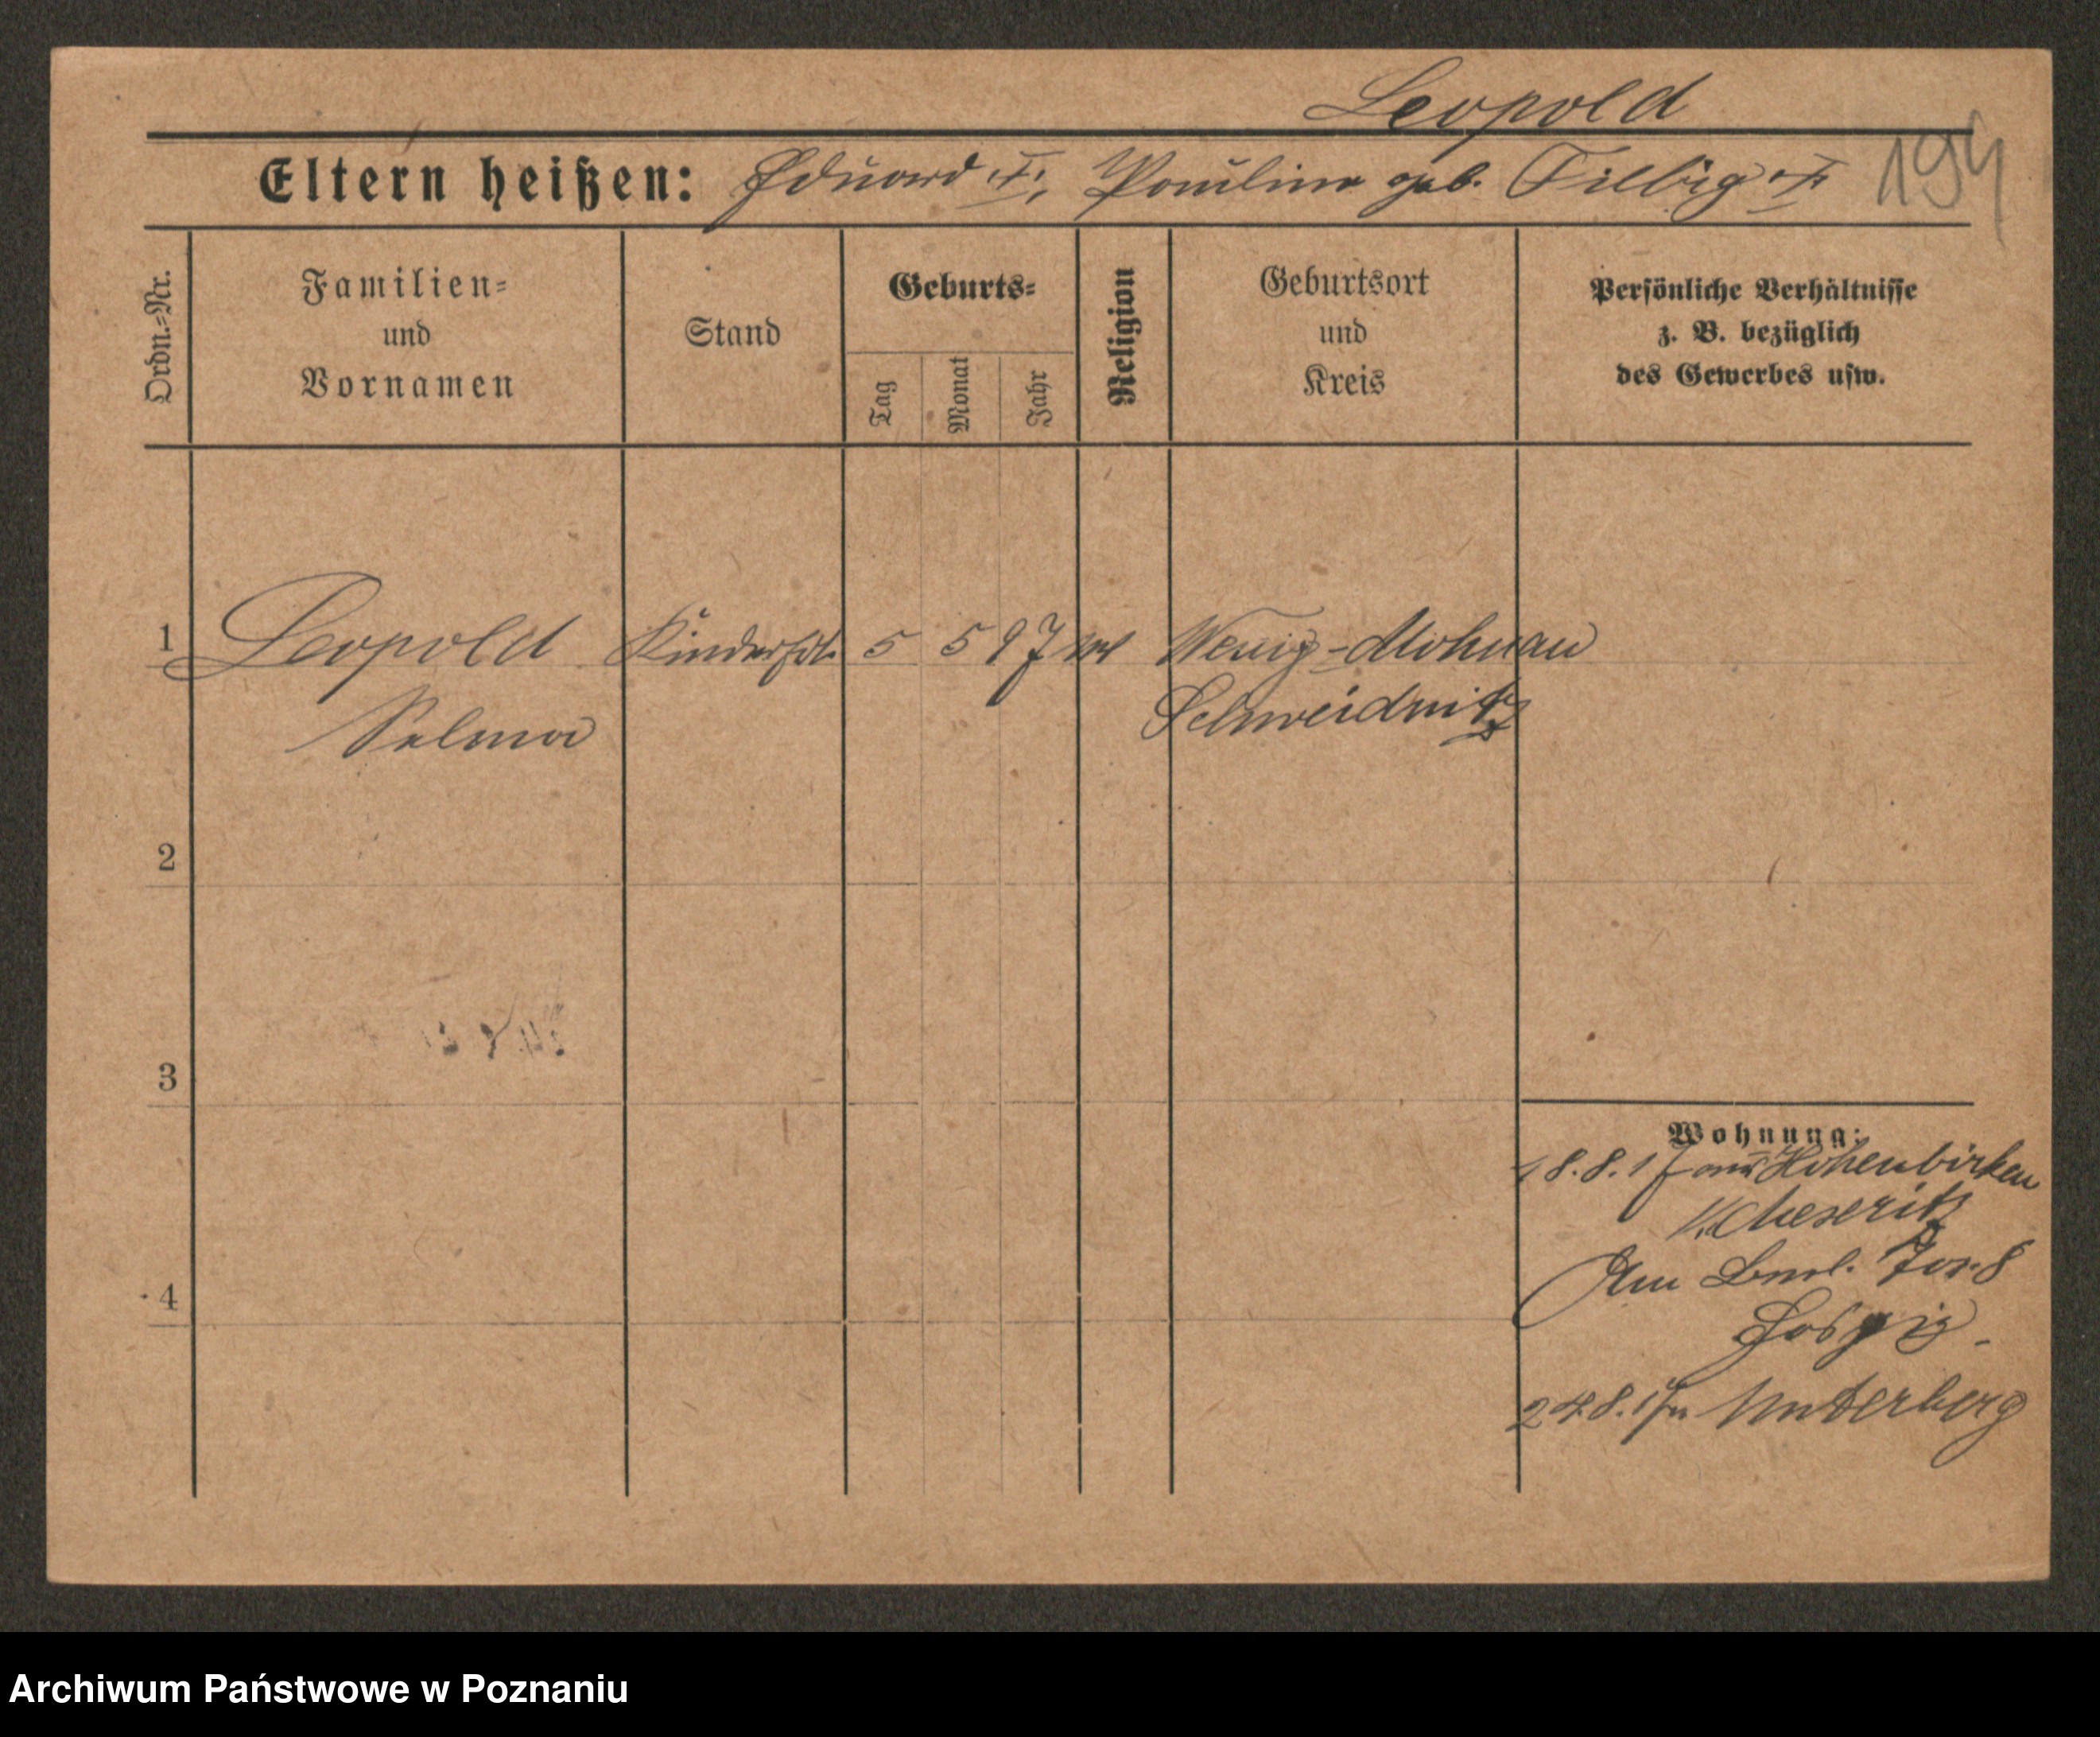 Leopold
194
Eltern heißen: Eduard †, Pauline geb. Filbig †
Ordn.-Nr.
Familien-
und
Vornamen
Stand
Geburts-
Tag
Monat
Jahr
Religion
Geburtsort
und
Kreis
Persönliche Verhältnisse
z. B. bezüglich
des Gewerbes usw.
1 Leopold Kinderfrl. 5 5 97 Wenig-Mohnau
Selma Schweidnitz
2
3
4
Wohnung:
18.8.17 aus Hohenbirken
K. Meseritz
Am Berl. Tor 8
Hospiz.
24.8.17 n Unterberg
Archiwum Państwowe w Poznaniu